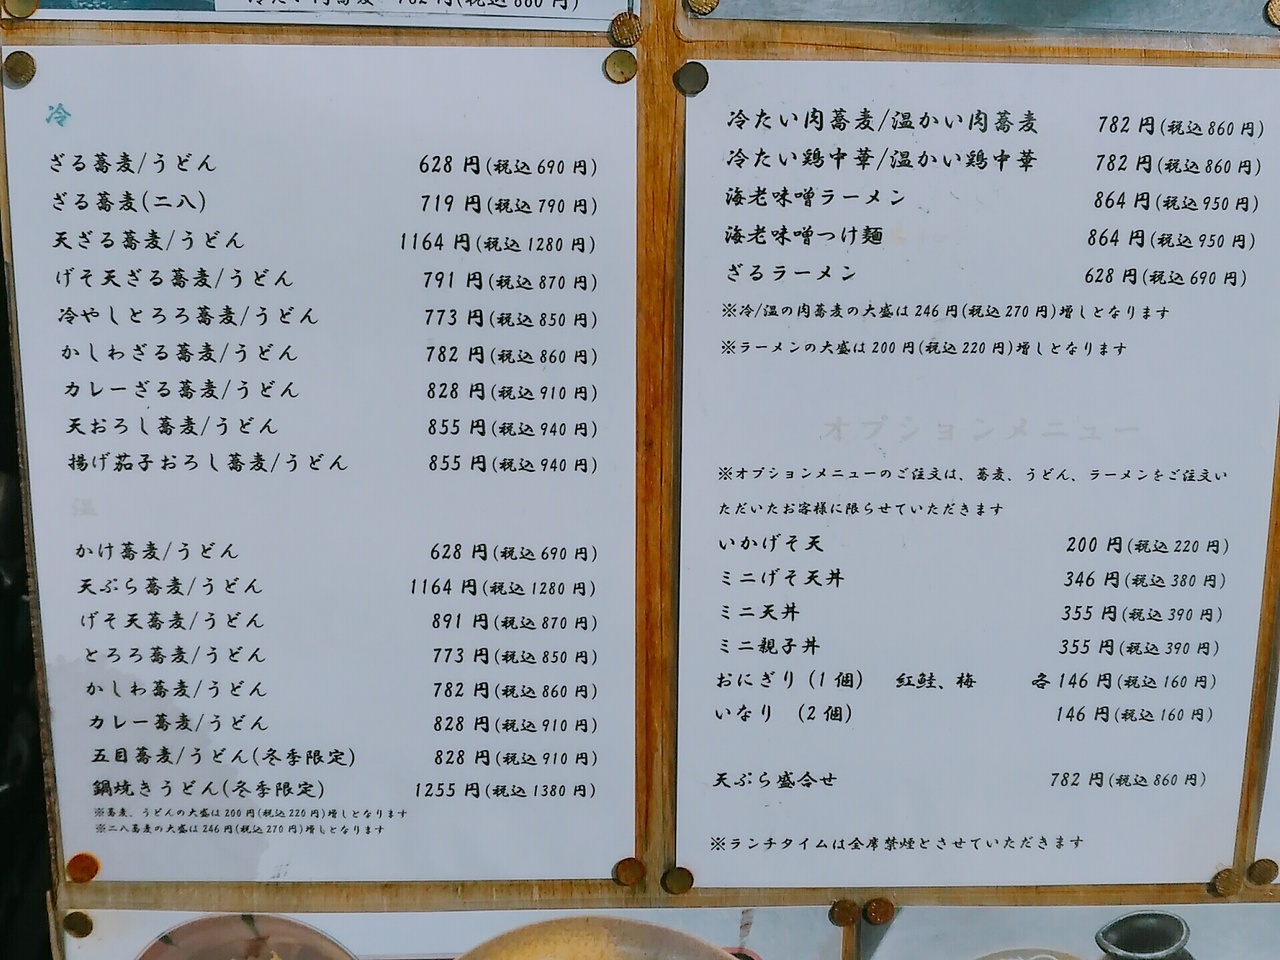 冷たい肉蕎麦 782円(税込860円)
冷
ざる蕎麦/うどん 628円(税込690円)
ざる蕎麦(二八) 719円(税込790円)
天ざる蕎麦/うどん 1164円(税込1280円)
げそ天ざる蕎麦/うどん 791円(税込870円)
冷やしとろろ蕎麦/うどん 773円(税込850円)
かしわざる蕎麦/うどん 782円(税込860円)
カレーざる蕎麦/うどん 828円(税込910円)
天おろし蕎麦/うどん 855円(税込940円)
揚げ茄子おろし蕎麦/うどん 855円(税込940円)
温
かけ蕎麦/うどん 628円(税込690円)
天ぷら蕎麦/うどん 1164円(税込1280円)
げそ天蕎麦/うどん 891円(税込870円)
とろろ蕎麦/うどん 773円(税込850円)
かしわ蕎麦/うどん 782円(税込860円)
カレー蕎麦/うどん 828円(税込910円)
五目蕎麦/うどん(冬季限定) 828円(税込910円)
鍋焼きうどん(冬季限定) 1255円(税込1380円)
※蕎麦、うどんの大盛は200円(税込220円)増しとなります
※二八蕎麦の大盛は246円(税込270円)増しとなります
冷たい肉蕎麦/温かい肉蕎麦 782円(税込860円)
冷たい鶏中華/温かい鶏中華 782円(税込860円)
海老味噌ラーメン 864円(税込950円)
海老味噌つけ麺 864円(税込950円)
ざるラーメン 628円(税込690円)
※冷/温の肉蕎麦の大盛は246円(税込270円)増しとなります
※ラーメンの大盛は200円(税込220円)増しとなります
オプションメニュー
※オプションメニューのご注文は、蕎麦、うどん、ラーメンをご注文い
ただいたお客様に限らせていただきます
いかげそ天 200円(税込220円)
ミニげそ天丼 346円(税込380円)
ミニ天丼 355円(税込390円)
ミニ親子丼 355円(税込390円)
おにぎり(1個) 紅鮭、梅 各146円(税込160円)
いなり (2個) 146円(税込160円)
天ぷら盛合せ 782円(税込860円)
※ランチタイムは全席禁煙とさせていただきます